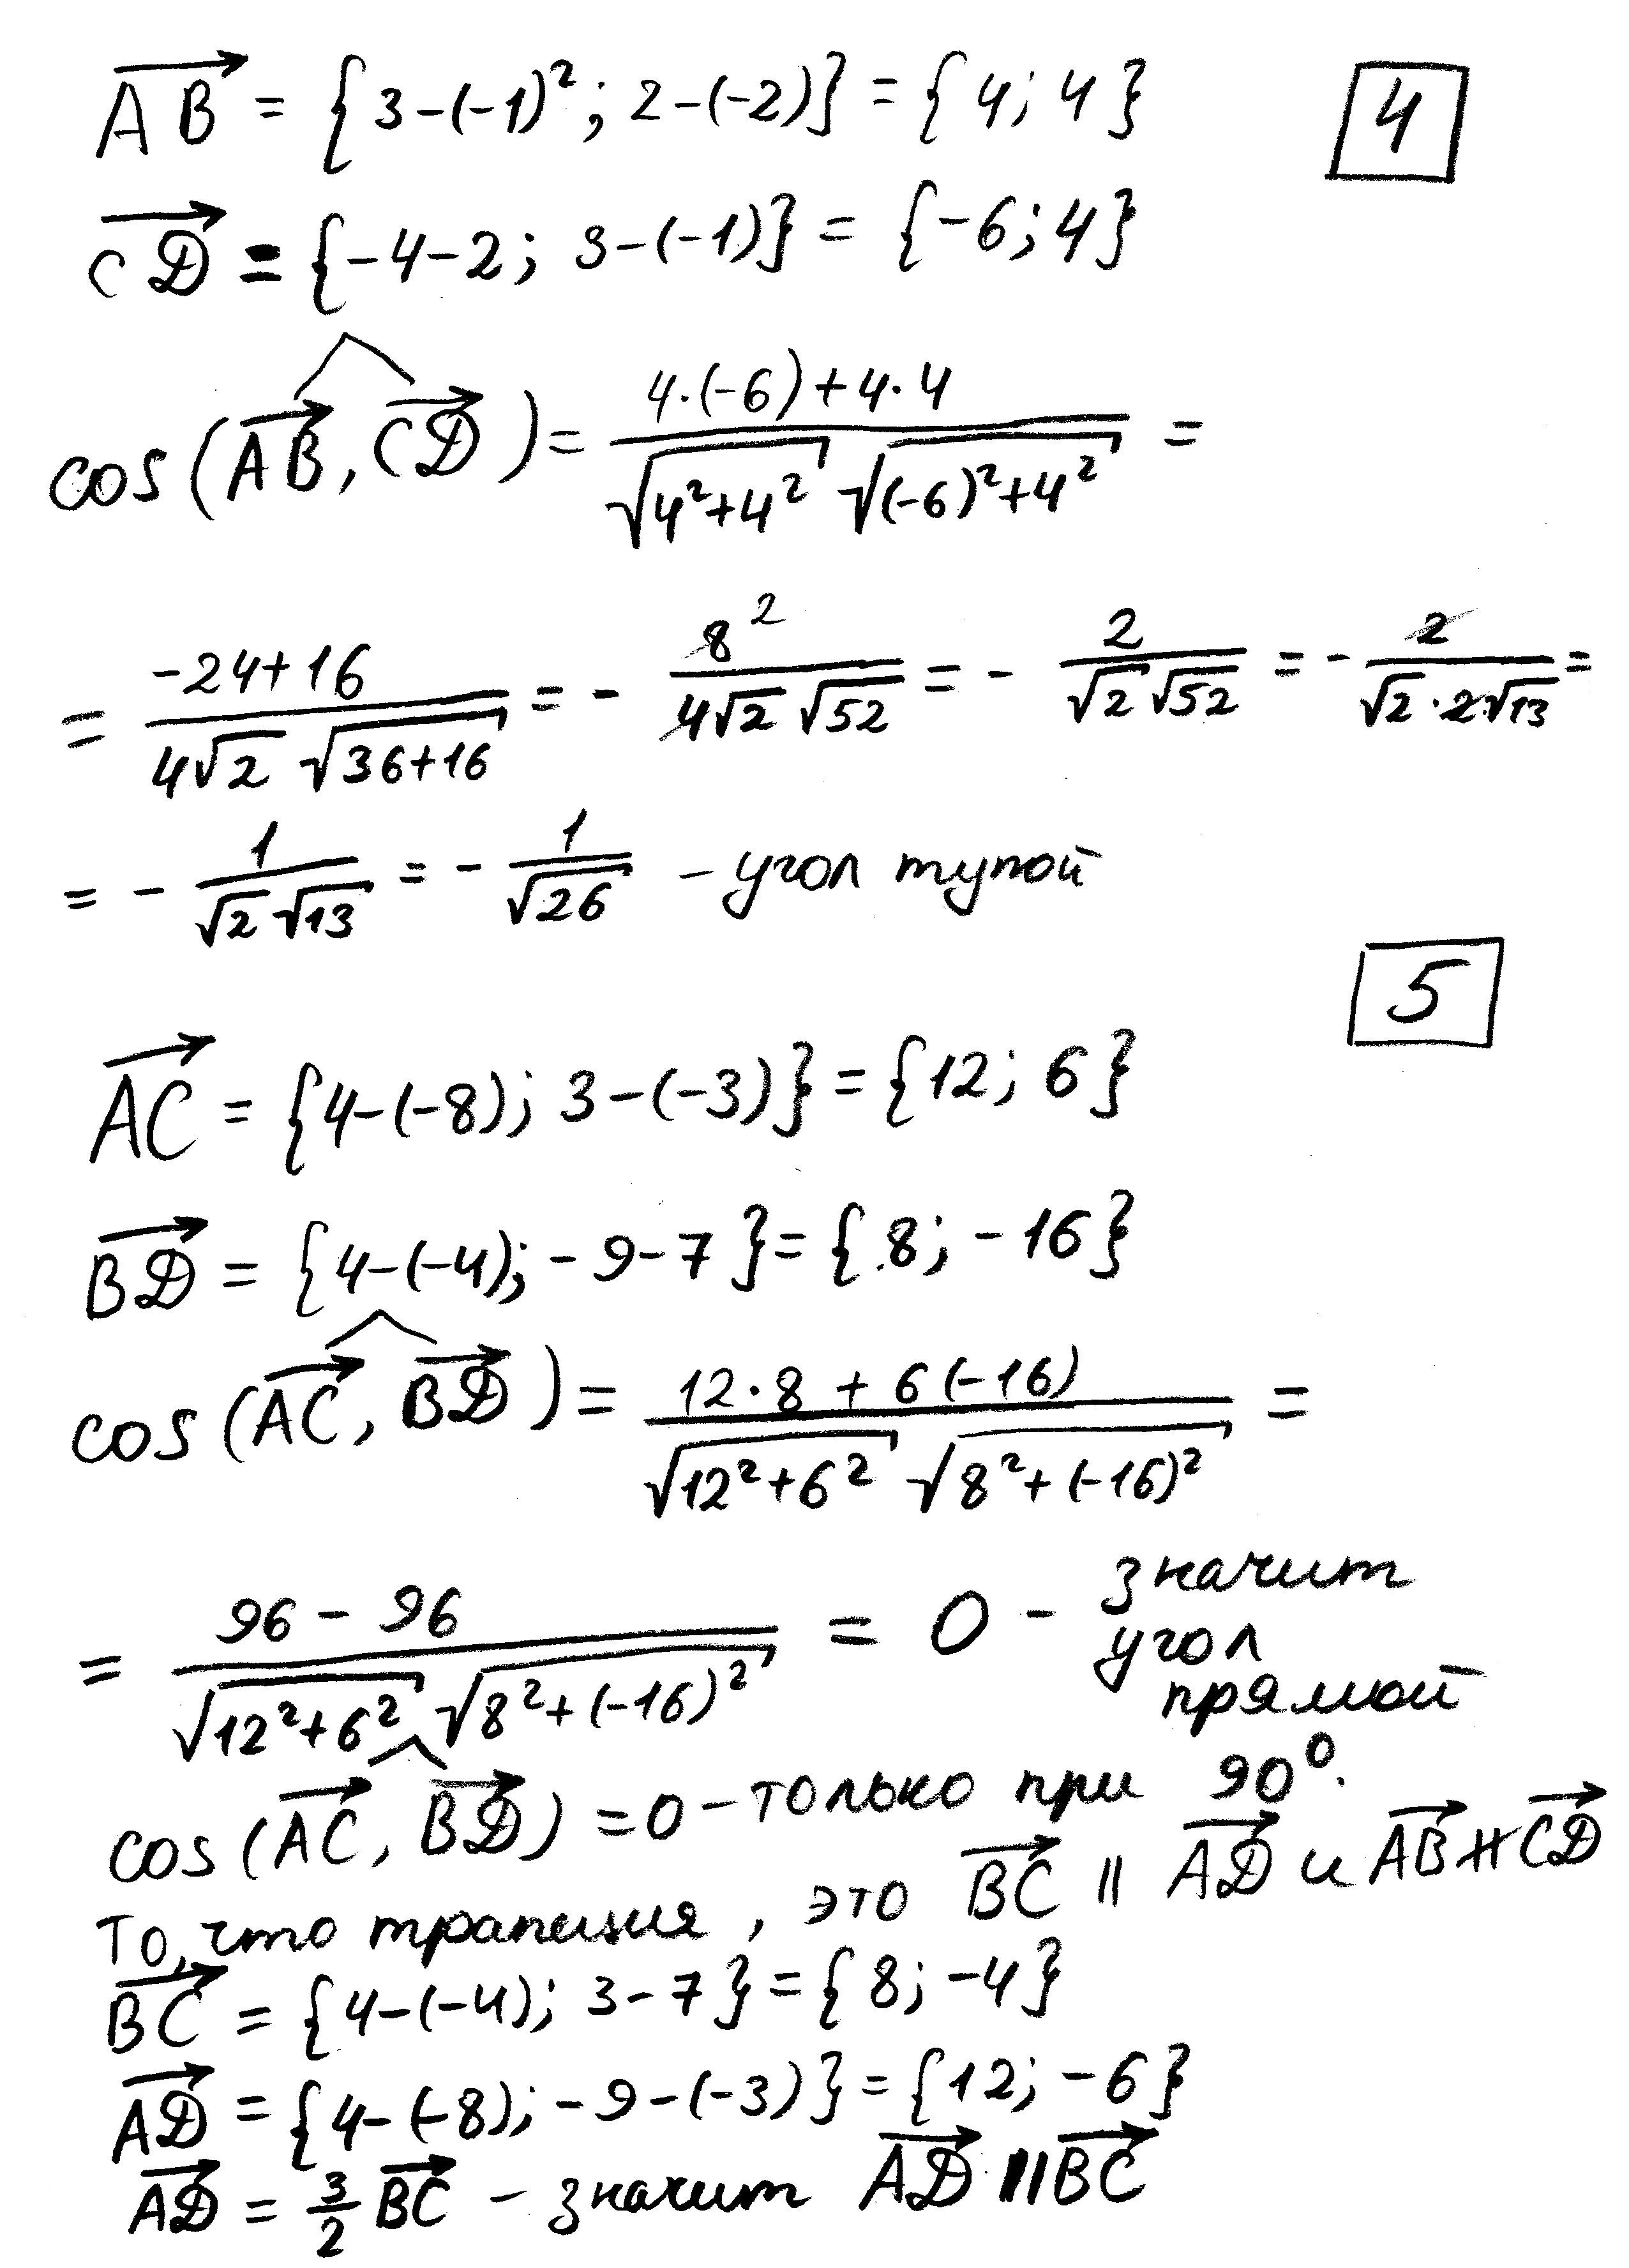 4
AB = {3-(-1)²; 2-(-2)} = {4; 4}
CD = {-4-2; 3-(-1)} = {-6; 4}
cos(AB, CD) = (4·(-6)+4·4)/(√(4²+4²) √((-6)²+4²)) =
= (-24+16)/(4√2 √(36+16)) = - 8 2/(4√2 √52) = - 2/(√2 √52) = - 2/(√2·2√13) =
= - 1/(√2 √13) = - 1/√26 - угол тупой
5
AC = {4-(-8); 3-(-3)} = {12; 6}
BD = {4-(-4); -9-7} = {8; -16}
cos(AC, BD) = (12·8 + 6(-16))/(√(12²+6²) √(8²+(-16)²)) =
= (96 - 96)/(√(12²+6²) √(8²+(-16)²)) = 0 - значит угол прямой
cos(AC, BD) = 0 - только при 90°.
То, что трапеция, это BC || AD и AB ∦ CD
BC = {4-(-4); 3-7} = {8; -4}
AD = {4-(-8); -9-(-3)} = {12; -6}
AD = 3/2 BC - значит AD || BC